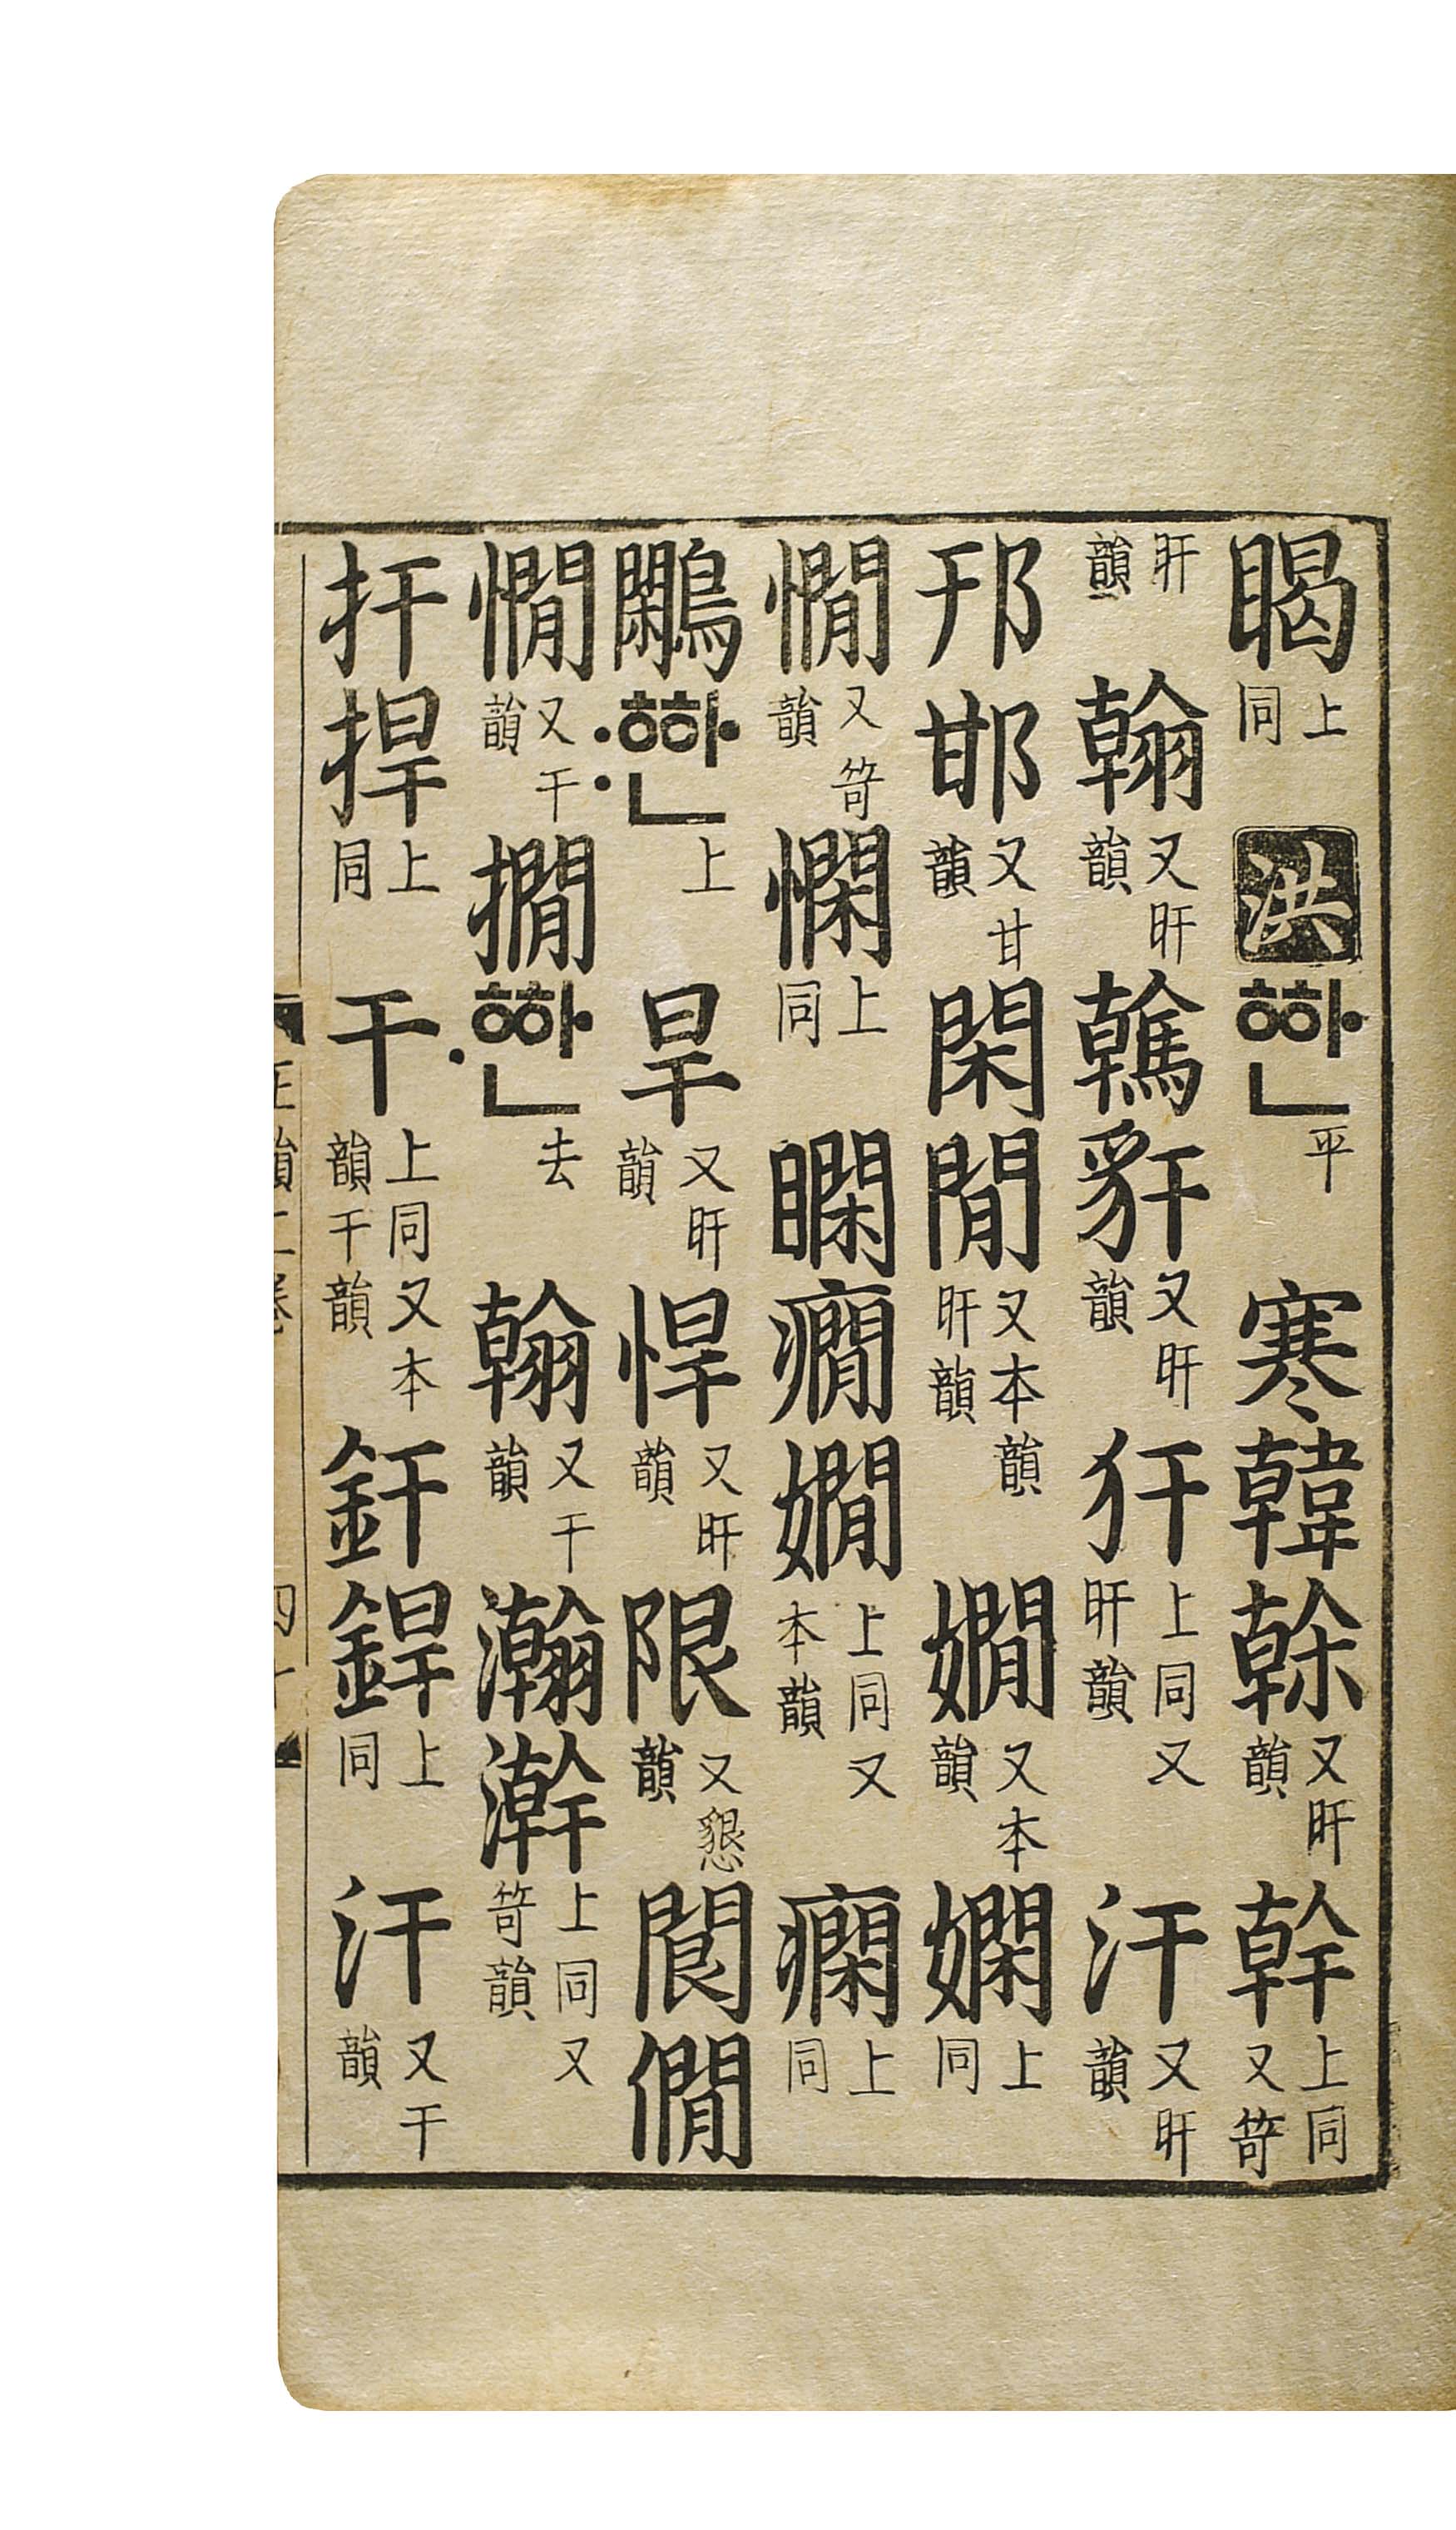 䁍上同 洪 ᅘᅡᆫ平 寒韓榦又旰韻幹上同又笴
旰韻翰又旰韻䮧豻又旰韻犴上同又旰韻汗又旰韻
邗邯又甘韻閑閒又本韻旰韻嫺又本韻嫻上同
憪又笴韻㦓上同癇嫺上同又本韻上同
鷳ᅘᅡᆫ〯上旱又旰韻悍又旰韻限又懇韻僩
憪又干韻撊ᅘᅡᆫ〮去翰又干韻瀚澣上同又笴韻
扞捍上同干上同又本韻干韻釬銲上同汗又干韻